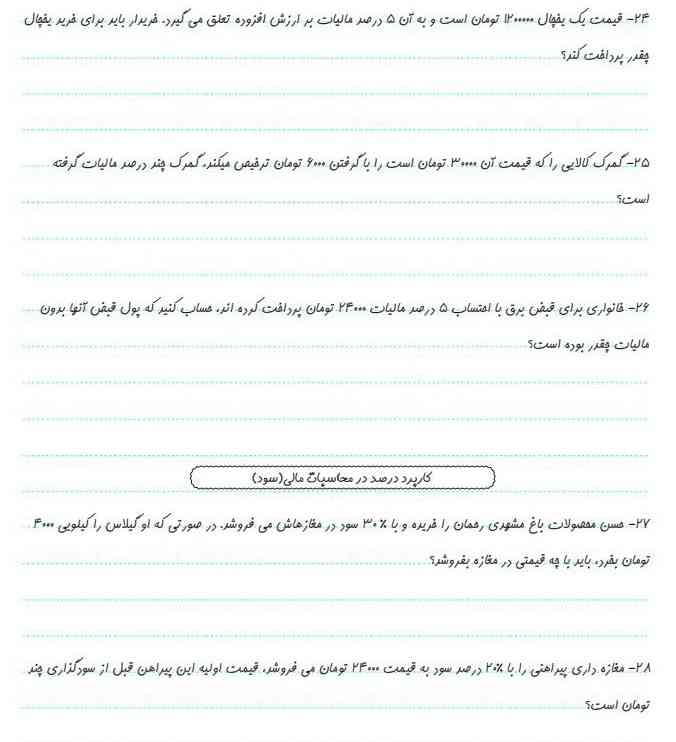 ۲۴- قیمت یک یخچال ۱۲۰۰۰۰۰ تومان است و به آن ۵ درصد مالیات بر ارزش افزوده تعلق می گیرد. خریدار باید برای خرید یخچال
چقدر پرداخت کند؟
۲۵- گمرک کالایی را که قیمت آن ۳۰۰۰۰ تومان است را با گرفتن ۶۰۰۰ تومان ترخیص میکند. گمرک چند درصد مالیات گرفته
است؟
۲۶- خانواری برای قبض برق با احتساب ۵ درصد مالیات ۲۴۰۰۰ تومان پرداخت کرده اند، حساب کنید که پول قبض آنها بدون
مالیات چقدر بوده است؟
کاربرد درصد در محاسبات مالی(سود)
۲۷- حسن محصولات باغ مشهدی رحمان را خریده و با ۳۰٪ سود در مغازهاش می فروشد. در صورتی که او گیلاس را کیلویی ۴۰۰۰
تومان بخرد، باید با چه قیمتی در مغازه بفروشد؟
۲۸- مغازه داری پیراهنی را با ۲۰٪ درصد سود به قیمت ۲۴۰۰۰ تومان می فروشد، قیمت اولیه این پیراهن قبل از سودگزاری چند
تومان است؟